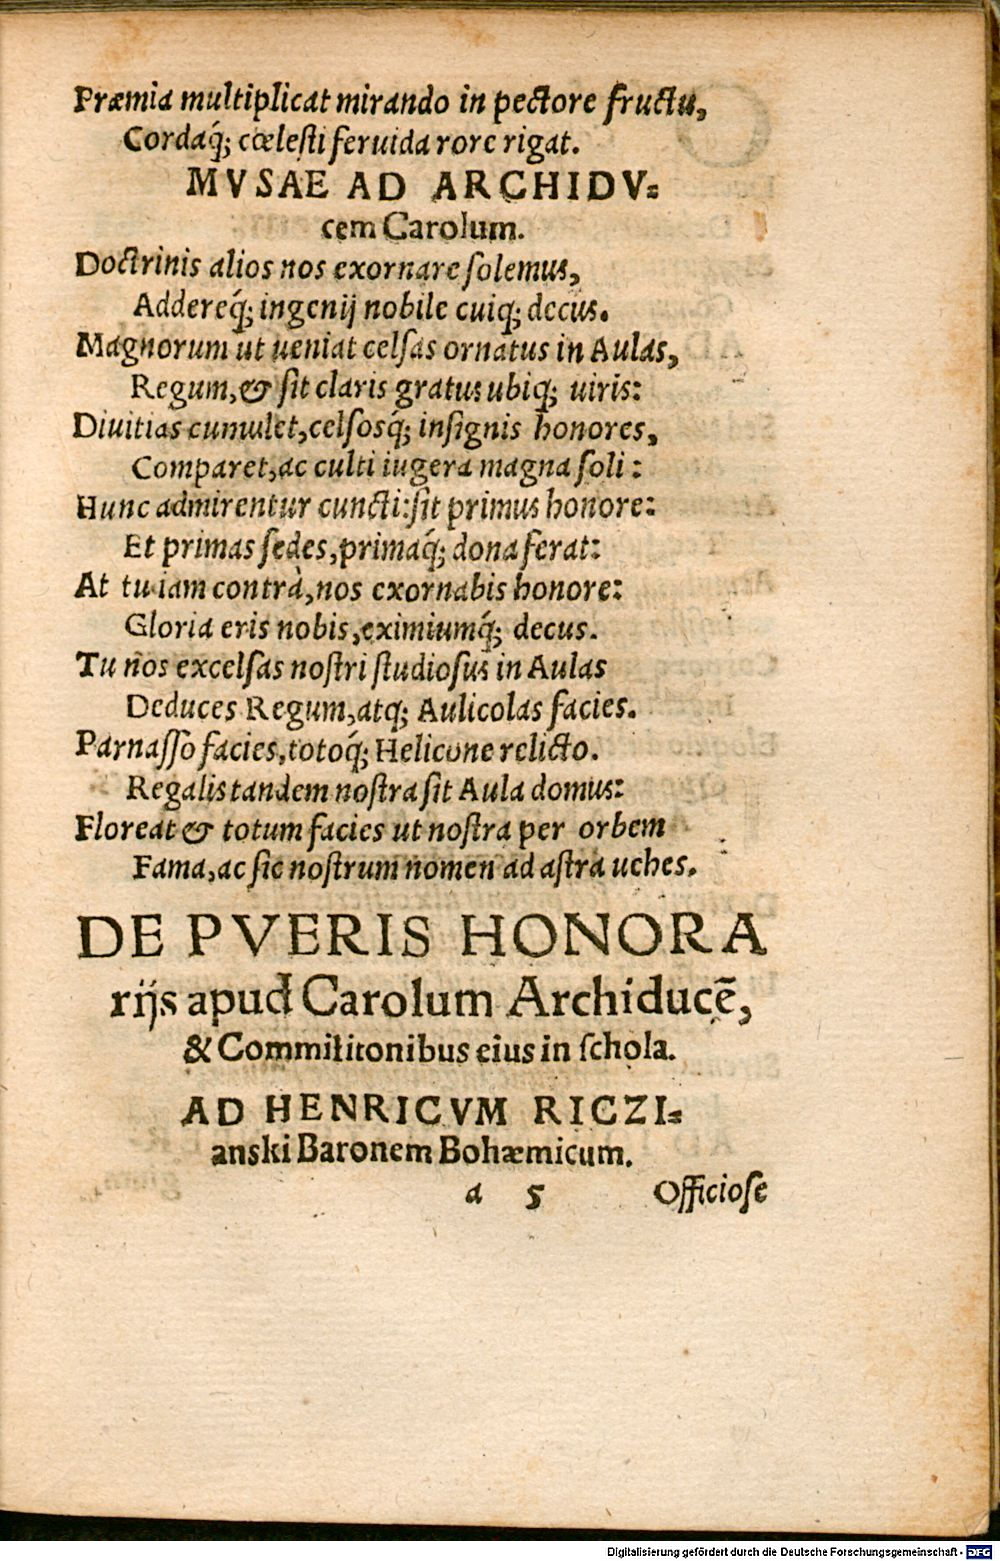 Præmia multiplicat mirando in pectore fructu,
Cordaq́; cœleſti feruida rore rigat.
MVSAE AD ARCHIDV⸗
cem Carolum.
Doctrinis alios nos exornare ſolemus,
Addereq́; ingenij nobile cuiq; decus.
Magnorum ut ueniat celſas ornatus in Aulas,
Regum, & ſit claris gratus ubiq; uiris:
Diuitias cumulet, celſosq́; inſignis honores,
Comparet, ac culti iugera magna ſoli:
Hunc admirentur cuncti: ſit primus honore:
Et primas ſedes, primaq́; dona ferat:
At tu iam contrà, nos exornabis honore:
Gloria eris nobis, eximiumq́; decus.
Tu nos excelſas noſtri ſtudioſus in Aulas
Deduces Regum, atq; Aulicolas facies.
Parnaſſo facies, totoq́; Helicone relicto.
Regalis tandem noſtra ſit Aula domus:
Floreat & totum facies ut noſtra per orbem
Fama, ac ſic noſtrum nomen ad aſtra uehes.
DE PVERIS HONORA
rijs apud Carolum Archiducē,
& Commilitonibus eius in ſchola.
AD HENRICVM RICZI⸗
anski Baronem Bohæmicum.
a 5 Officioſe
Digitalisierung gefördert durch die Deutsche Forschungsgemeinschaft - DFG